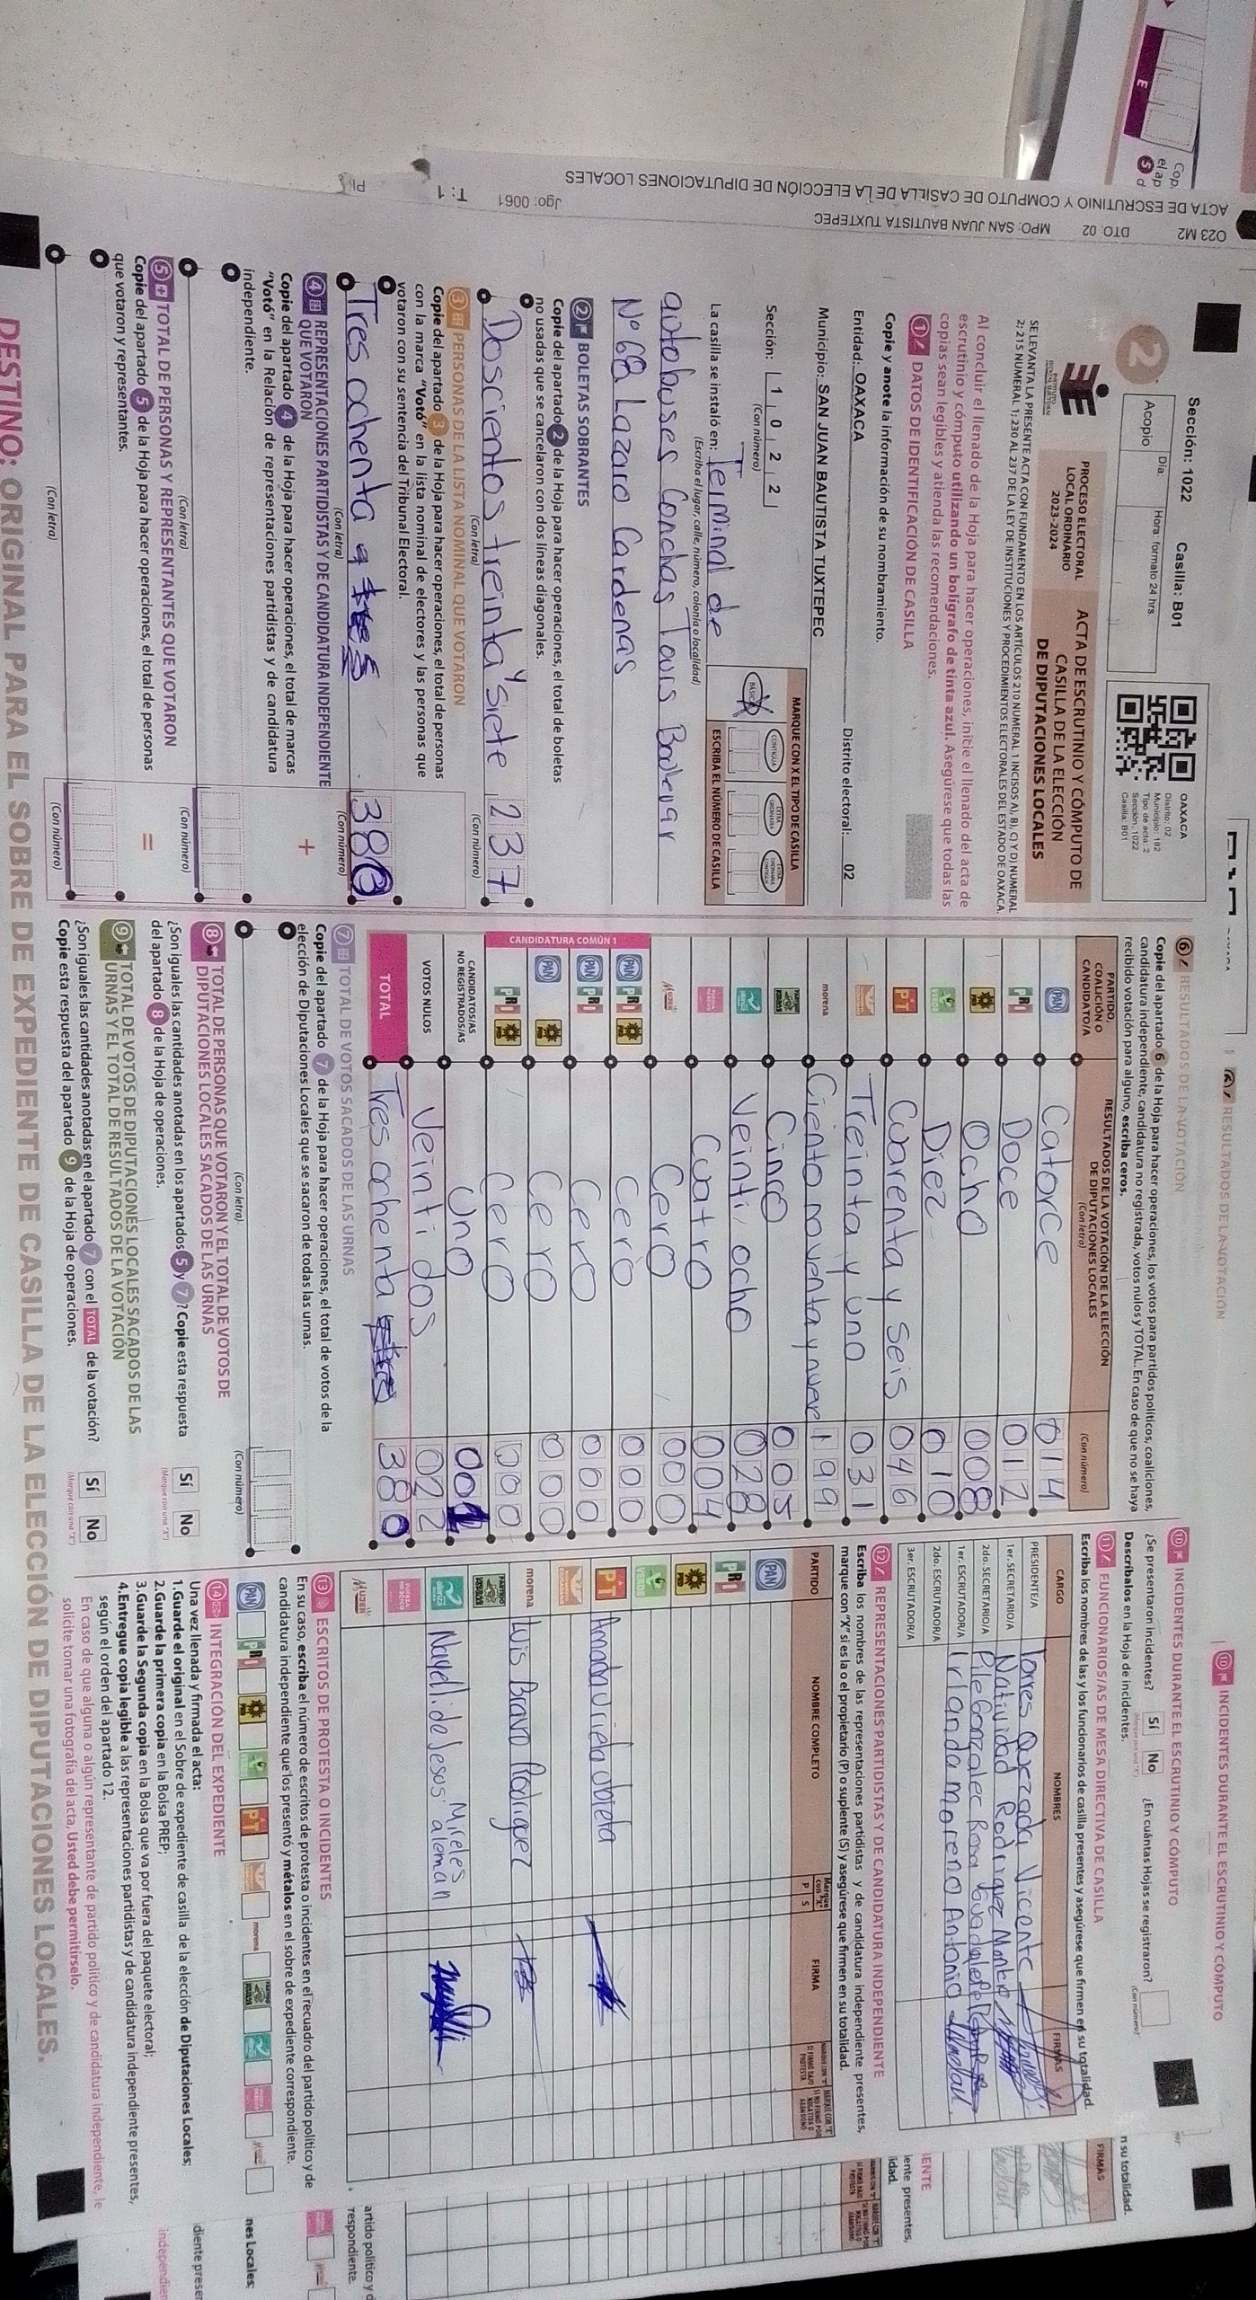 ACTA DE ESCRUTINIO Y CÓMPUTO DE CASILLA DE LA ELECCIÓN DE DIPUTACIONES LOCALES
023 M2
DTO: 02
MPO: SAN JUAN BAUTISTA TUXTEPEC
Jgo: 0061
T: 1
Sección: 1022 Casilla: B01
2
Acopio
Día:
Hora: formato 24 hrs.
OAXACA
Distrito: 02
Municipio: 182
Tipo de acta: 2
Sección: 1022
Casilla: B01
PROCESO ELECTORAL
LOCAL ORDINARIO
2023-2024
ACTA DE ESCRUTINIO Y CÓMPUTO DE
CASILLA DE LA ELECCIÓN
DE DIPUTACIONES LOCALES
SE LEVANTA LA PRESENTE ACTA CON FUNDAMENTO EN LOS ARTÍCULOS 210 NUMERAL 1 INCISOS A), B), C) Y D) NUMERAL
2; 215 NUMERAL 1; 230 AL 237 DE LA LEY DE INSTITUCIONES Y PROCEDIMIENTOS ELECTORALES DEL ESTADO DE OAXACA.
Al concluir el llenado de la Hoja para hacer operaciones, inicie el llenado del acta de
escrutinio y cómputo utilizando un bolígrafo de tinta azul. Asegúrese que todas las
copias sean legibles y atienda las recomendaciones.
1 DATOS DE IDENTIFICACIÓN DE CASILLA
Copie y anote la información de su nombramiento.
Entidad: OAXACA Distrito electoral: 02
Municipio: SAN JUAN BAUTISTA TUXTEPEC
Sección: 1 0 2 2
(Con número)
MARQUE CON X EL TIPO DE CASILLA
BÁSICA
CONTIGUA
ESCRIBA EL NÚMERO DE CASILLA
La casilla se instaló en: Terminal de
(Escriba el lugar, calle, número, colonia o localidad)
autobuses Conchas Tours Boolevar
N° 68 Lazaro Cardenas
2 BOLETAS SOBRANTES
Copie del apartado 2 de la Hoja para hacer operaciones, el total de boletas
no usadas que se cancelaron con dos líneas diagonales.
Doscientos treinta y siete 237
(Con letra) (Con número)
3 PERSONAS DE LA LISTA NOMINAL QUE VOTARON
Copie del apartado 3 de la Hoja para hacer operaciones, el total de personas
con la marca "Votó" en la lista nominal de electores y las personas que
votaron con su sentencia del Tribunal Electoral.
Tres ochenta 380
(Con letra) (Con número)
4 REPRESENTACIONES PARTIDISTAS Y DE CANDIDATURA INDEPENDIENTE
QUE VOTARON
+
Copie del apartado 4 de la Hoja para hacer operaciones, el total de marcas
"Votó" en la Relación de representaciones partidistas y de candidatura
independiente.
(Con letra) (Con número)
5 TOTAL DE PERSONAS Y REPRESENTANTES QUE VOTARON
=
Copie del apartado 5 de la Hoja para hacer operaciones, el total de personas
que votaron y representantes.
(Con letra) (Con número)
6 RESULTADOS DE LA VOTACIÓN
Copie del apartado 6 de la Hoja para hacer operaciones, los votos para partidos políticos, coaliciones,
candidatura independiente, candidatura no registrada, votos nulos y TOTAL. En caso de que no se haya
recibido votación para alguno, escriba ceros.
PARTIDO, COALICIÓN O CANDIDATO/A
RESULTADOS DE LA VOTACIÓN DE LA ELECCIÓN DE DIPUTACIONES LOCALES
(Con letra) (Con número)
PAN Catorce 014
PRI Doce 012
PRD Ocho 008
VERDE Diez 010
PT Cuarenta y seis 046
Treinta y uno 031
morena Ciento noventa y nueve 199
Cinco 005
Veinti ocho 028
Cuatro 004
MUJER Cero 000
CANDIDATURA COMÚN 1
PAN PRI PRD Cero 000
PAN PRI Cero 000
PAN PRD Cero 000
PRI PRD Cero 000
CANDIDATOS/AS NO REGISTRADOS/AS Uno 001
VOTOS NULOS Veinti dos 022
TOTAL Tres ochenta 380
7 TOTAL DE VOTOS SACADOS DE LAS URNAS
Copie del apartado 7 de la Hoja para hacer operaciones, el total de votos de la
elección de Diputaciones Locales que se sacaron de todas las urnas.
(Con letra) (Con número)
8 TOTAL DE PERSONAS QUE VOTARON Y EL TOTAL DE VOTOS DE
DIPUTACIONES LOCALES SACADOS DE LAS URNAS
¿Son iguales las cantidades anotadas en los apartados 5 y 7? Copie esta respuesta
del apartado 8 de la Hoja de operaciones.
Sí No
9 TOTAL DE VOTOS DE DIPUTACIONES LOCALES SACADOS DE LAS
URNAS Y EL TOTAL DE RESULTADOS DE LA VOTACIÓN
¿Son iguales las cantidades anotadas en el apartado 7 con el TOTAL de la votación?
Copie esta respuesta del apartado 9 de la Hoja de operaciones.
Sí No
10 INCIDENTES DURANTE EL ESCRUTINIO Y CÓMPUTO
¿Se presentaron incidentes? Sí No ¿En cuántas Hojas se registraron?
Descríbalos en la Hoja de incidentes.
11 FUNCIONARIOS/AS DE MESA DIRECTIVA DE CASILLA
Escriba los nombres de las y los funcionarios de casilla presentes y asegúrese que firmen en su totalidad.
CARGO NOMBRES FIRMAS
PRESIDENTE/A Torres Quezada Vicente
1er. SECRETARIO/A Natividad Rodriguez Montero
2do. SECRETARIO/A
1er. ESCRUTADOR/A Irlanda moreno Antonio
2do. ESCRUTADOR/A
3er. ESCRUTADOR/A
12 REPRESENTACIONES PARTIDISTAS Y DE CANDIDATURA INDEPENDIENTE
Escriba los nombres de las representaciones partidistas y de candidatura independiente presentes,
marque con "X" si es la o el propietario (P) o suplente (S) y asegúrese que firmen en su totalidad.
PARTIDO NOMBRE COMPLETO P S FIRMA
PAN
PRI
PRD
VERDE
PT Amada urieta obieta
morena Luis Bravo Rodriguez
Nayelli de Jesus Mireles aleman
MUJER
13 ESCRITOS DE PROTESTA O INCIDENTES
En su caso, escriba el número de escritos de protesta o incidentes en el recuadro del partido político y de
candidatura independiente que los presentó y métalos en el sobre de expediente correspondiente.
14 INTEGRACIÓN DEL EXPEDIENTE
Una vez llenada y firmada el acta:
1.Guarde el original en el Sobre de expediente de casilla de la elección de Diputaciones Locales;
2.Guarde la primera copia en la Bolsa PREP;
3.Guarde la Segunda copia en la Bolsa que va por fuera del paquete electoral;
4.Entregue copia legible a las representaciones partidistas y de candidatura independiente presentes,
según el orden del apartado 12.
En caso de que alguna o algún representante de partido político y de candidatura independiente, le
solicite tomar una fotografía del acta, Usted debe permitírselo.
DESTINO: ORIGINAL PARA EL SOBRE DE EXPEDIENTE DE CASILLA DE LA ELECCIÓN DE DIPUTACIONES LOCALES.